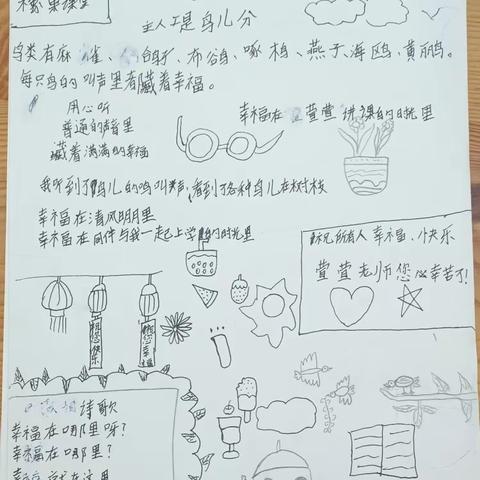 橡果课堂
主人工是鸟儿分
鸟类有麻雀、鸽子、布谷鸟、啄木鸟、燕子、海鸥、黄鹂。
每只鸟的叫声里都藏着幸福。
用心听
普通的声音里
藏着满满的幸福
幸福在萱萱讲课的时光里
我听到了鸟儿的鸣叫声,看到了各种鸟儿在树枝
幸福在清风明月里
幸福在同伴与我一起上学的时光里
祝所有人幸福、快乐
萱萱老师您心辛苦了!
祝您快乐
祝您幸福
诗歌
幸福在哪里呀?
幸福在哪里?
幸福就在这里